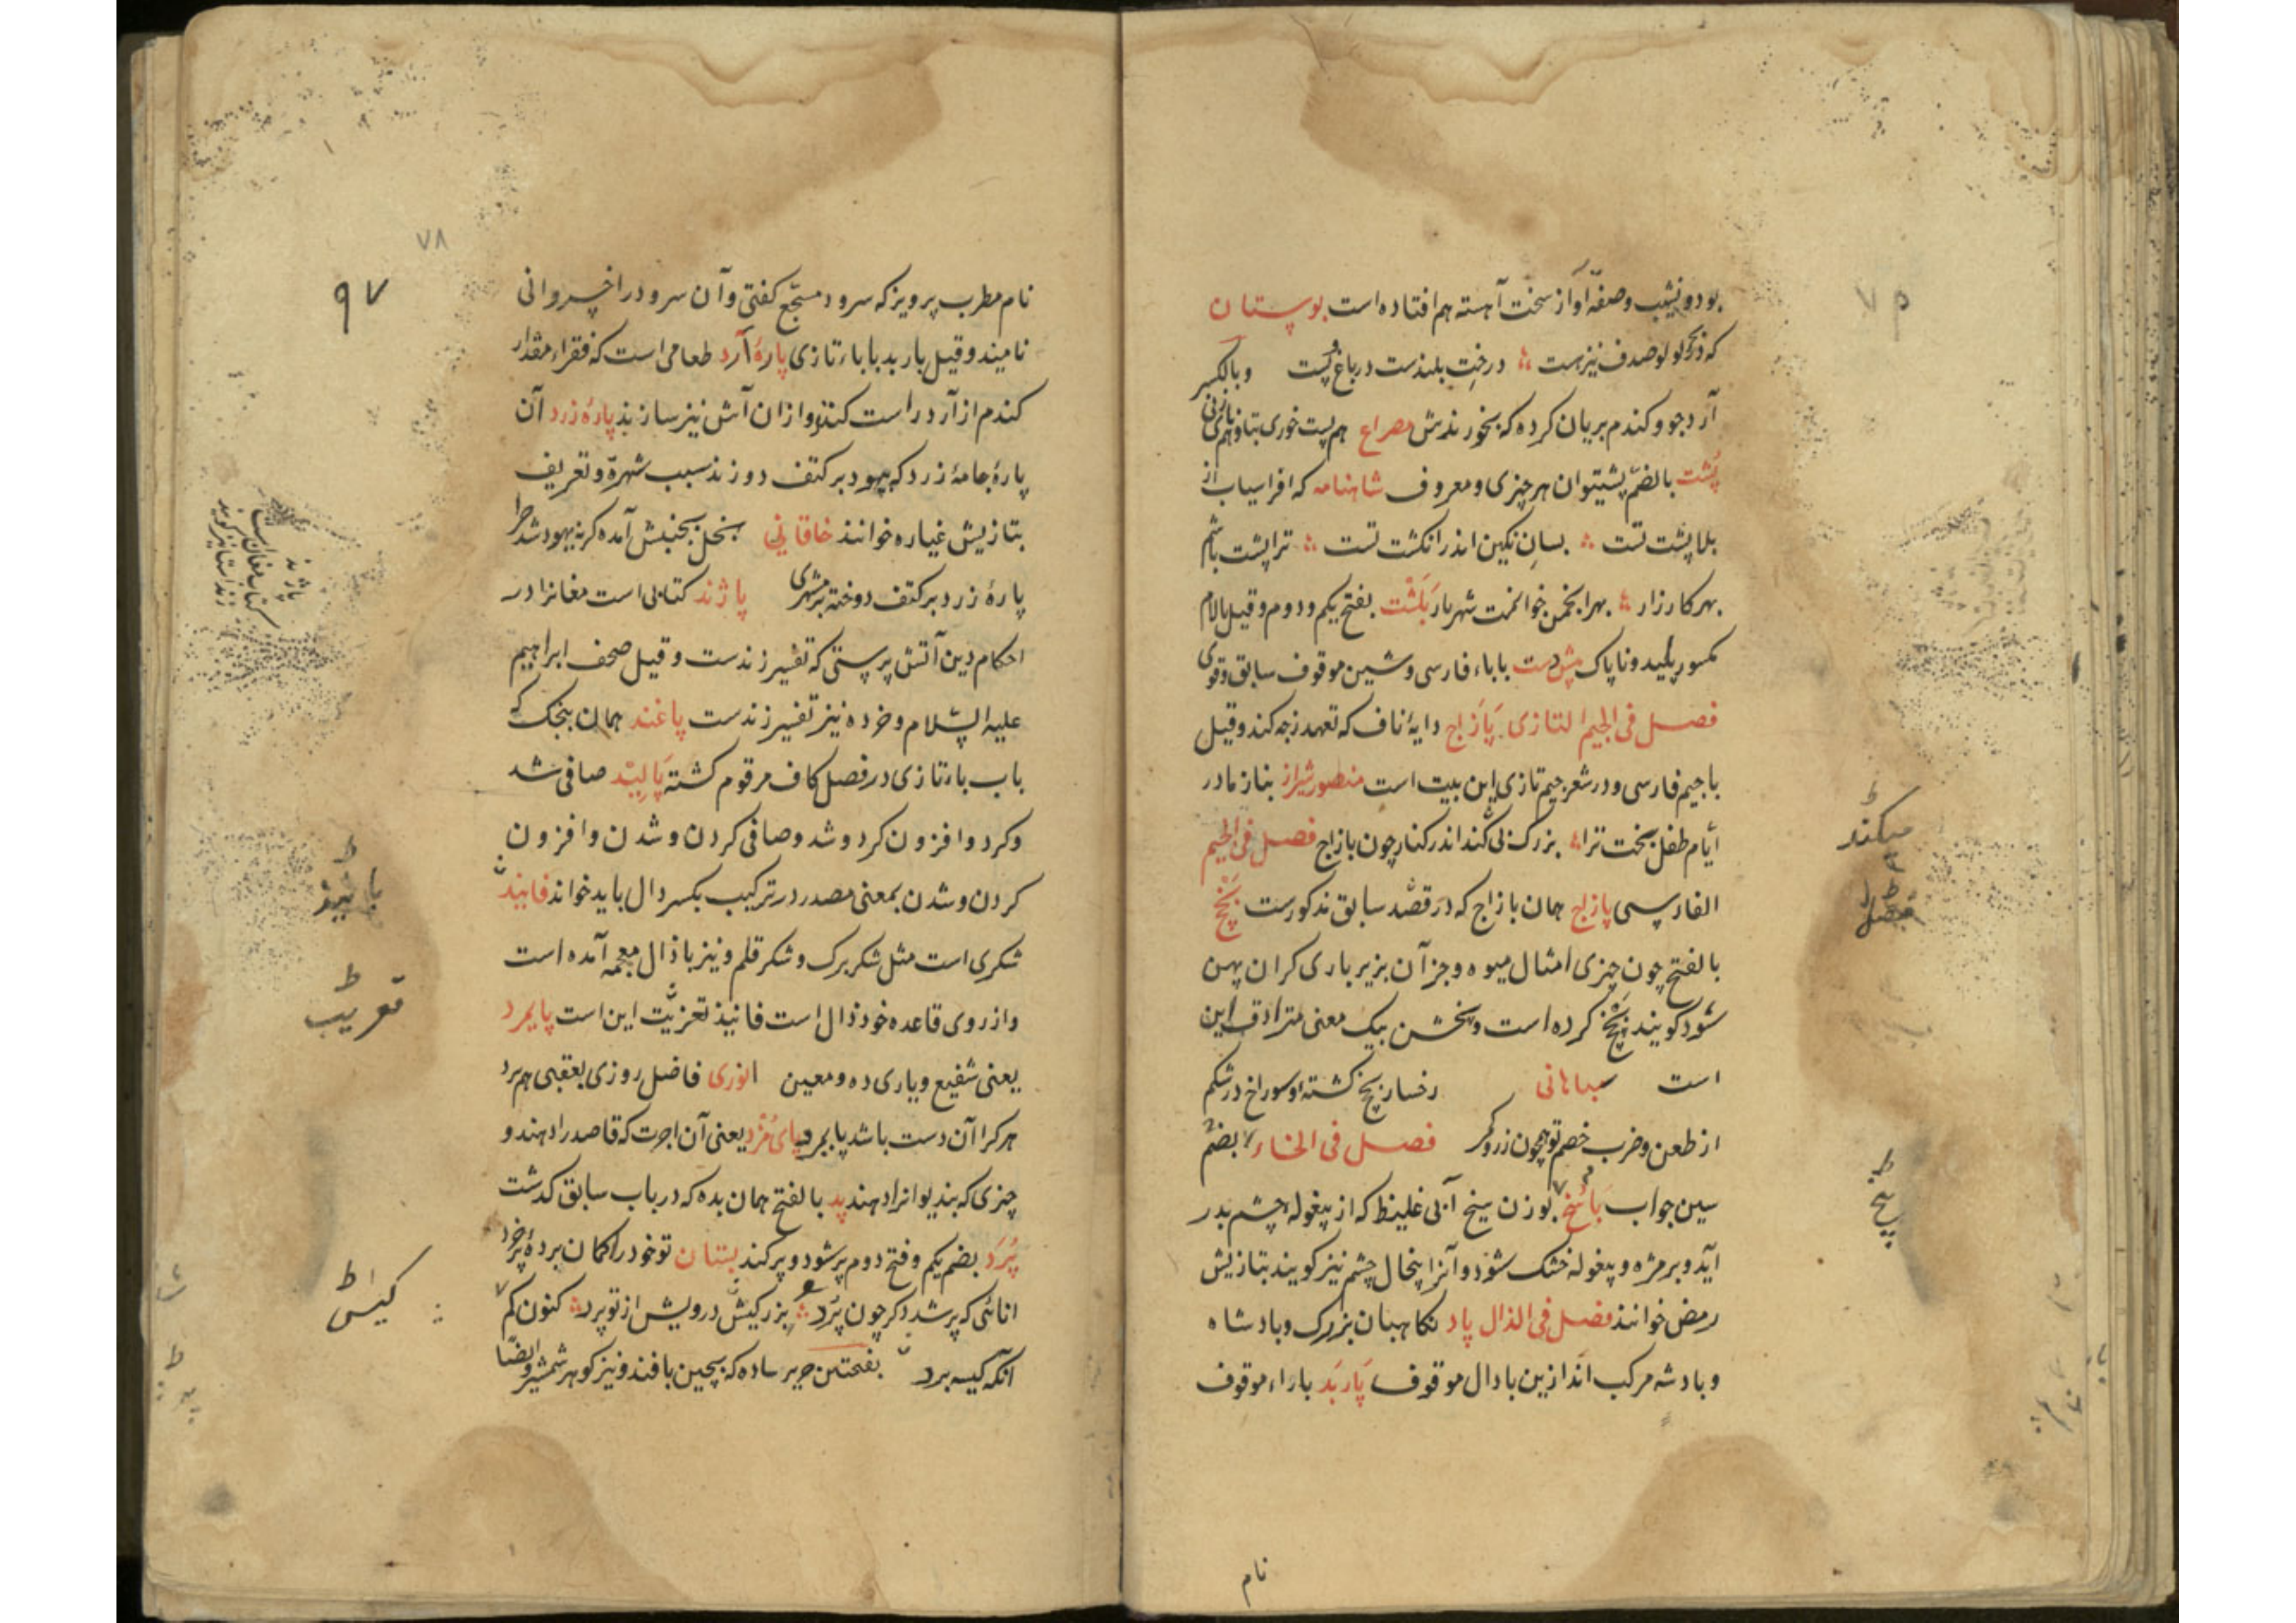 بود و نشیب و صفهٔ آواز سخت آهسته هم افتاده است بوستان
که در بحر لولو صدف نیز هست درخت بلندست در باغ و پست وبالکسر
آرد جو و کندم بریان کرده که بخورندش مصراع هم پست خوری بتا و هم
پُشت بالضم پشتیوان هر چیزی و معروف شاهنامه که افراسیاب از
بلا پشت تست بسان نکین اندر انکشت تست ترا پشت باشم
بهر کارزار بهر انجمن خوانمت شهریار پَلَشْت بفتح یکم و دوم و قیل بالام
کمسور پلید و ناپاک پیش دست با باء فارسی و شین موقوف سابق و قوی
فصل فی الجیم التازی پَازَاج دایهٔ ناف که تعهد زجه کند و قیل
با جیم فارسی و در شعر جیم تازی این بیت است منصور شیراز بناز مادر
ایام طفل بخت ترا بزرک نی کند اندر کنار چون بازاج فصل فی الجیم
الفارسی پازاج همان بازاج که در قصد سابق مذکورست پَخَجْ
بالفتح چون چیزی امثال میوه و جز آن بزیر باری کران پهن
شود کویند پخج کرده است و پخشن بیک معنی مترادف این
است سباهانی رخسار پخج کشته او سوراخ در شکم
از طعن و ضرب خصم تو همچون زر و کمر فصل فی الخاء بضم
سین جواب پاسُخ بوزن سیخ آبی غلیظ که از پیغوله چشم بدر
آید و بر مژه و پیغوله خشک شود و آنرا پنخال چشم نیز کویند بتازیش
رمض خوانند فصل فی الدال پاد نکاهبان بزرک و بادشاه
و بادشه مرکب اند ازین با دال موقوف پَاربَد با راء موقوف
نام
میکند
پیخ
۷۸
۹۷
نام مطرب پرویز که سرود مسجع کفتی و آن سرود را خسروانی
نامیند و قیل باربد با باء تازی پارهٔ آرد طعامی است که فقراء مقدار
کندم از آرد راست کنند و ازان آش نیز سازند پارهٔ زرد آن
پارهٔ جامهٔ زرد که یهود بر کتف دوزند سبب شهرة و تعریف
بتازیش غیاره خوانند خاقانی بخل بجنبش آمده کرنه یهود شد چرا
پارهٔ زرد بر کتف دوخته مشتری پاژند کتابی است مغانرا در
احکام دین آتش پرستی که تفسیر زندست و قیل صحف ابراهیم
علیه السلام و خرده نیز تفسیر زندست پاغند همان بنجک که
باب باء تازی در فصل کاف مرقوم کشته پَالِیْد صافی شد
و کرد و افزون کرد و شد و صافی کردن و شدن و افزون
کردن و شدن بمعنی مصدر در ترکیب بکسر دال باید خواند فانید
شکری است مثل شکر برک و شکر قلم و نیز با ذال معجمه آمده است
و از روی قاعده خود ذال است فانیذ تعریب این است پایمرد
یعنی شفیع و یاری ده و معین انوری فاضل روزی بعقبی هم برد
هر کرا آن دست باشد پایمرد پای مُزد یعنی آن اجرت که قاصد را دهند و
چیزی که بندیوانرا دهند پد بالفتح همان بده که در باب سابق کدشت
پُرَد بضم یکم و فتح دوم پر شود و پر کند بستان تو خود را کمان بردهٔ پر خرد
انائی که پر شد دکر چون پُرد بزرکیش درویش از تو پرد کنون کم
آنکه کیسه برد بفتحتین حریر ساده که بچین بافند و نیز کوهر شمشیر و ایضا
پاژند
کتاب مغان است
تعریب